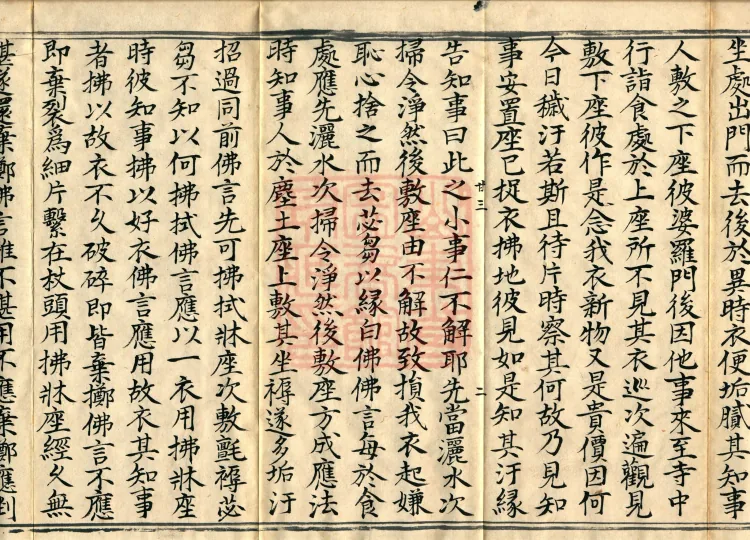 坐處出門而去後於異時衣便垢膩其知事
人敷之下座彼婆羅門後因他事來至寺中
行詣食處於上座所不見其衣巡次遍觀見
敷下座彼作是念我衣新物又是貴價因何
今日穢汙若斯且待片時察其何故乃見知
事安置座已捉衣拂地彼見如是知其汙緣
廿三 二
告知事曰此之小事仁不解耶先當灑水次
掃令淨然後敷座由不解故致損我衣起嫌
恥心捨之而去苾芻以緣白佛佛言每於食
處應先灑水次掃令淨然後敷座方成應法
時知事人於塵土座上敷其坐褥遂多垢汙
招過同前佛言先可拂拭牀座次敷氈褥苾
芻不知以何拂拭佛言應以一衣用拂牀座
時彼知事拂以好衣佛言應用故衣其知事
者拂以故衣不久破碎即皆棄擲佛言不應
即棄裂為細片繫在杖頭用拂牀座經久無
堪遂還棄擲佛言雖不堪用不應棄擲應剉